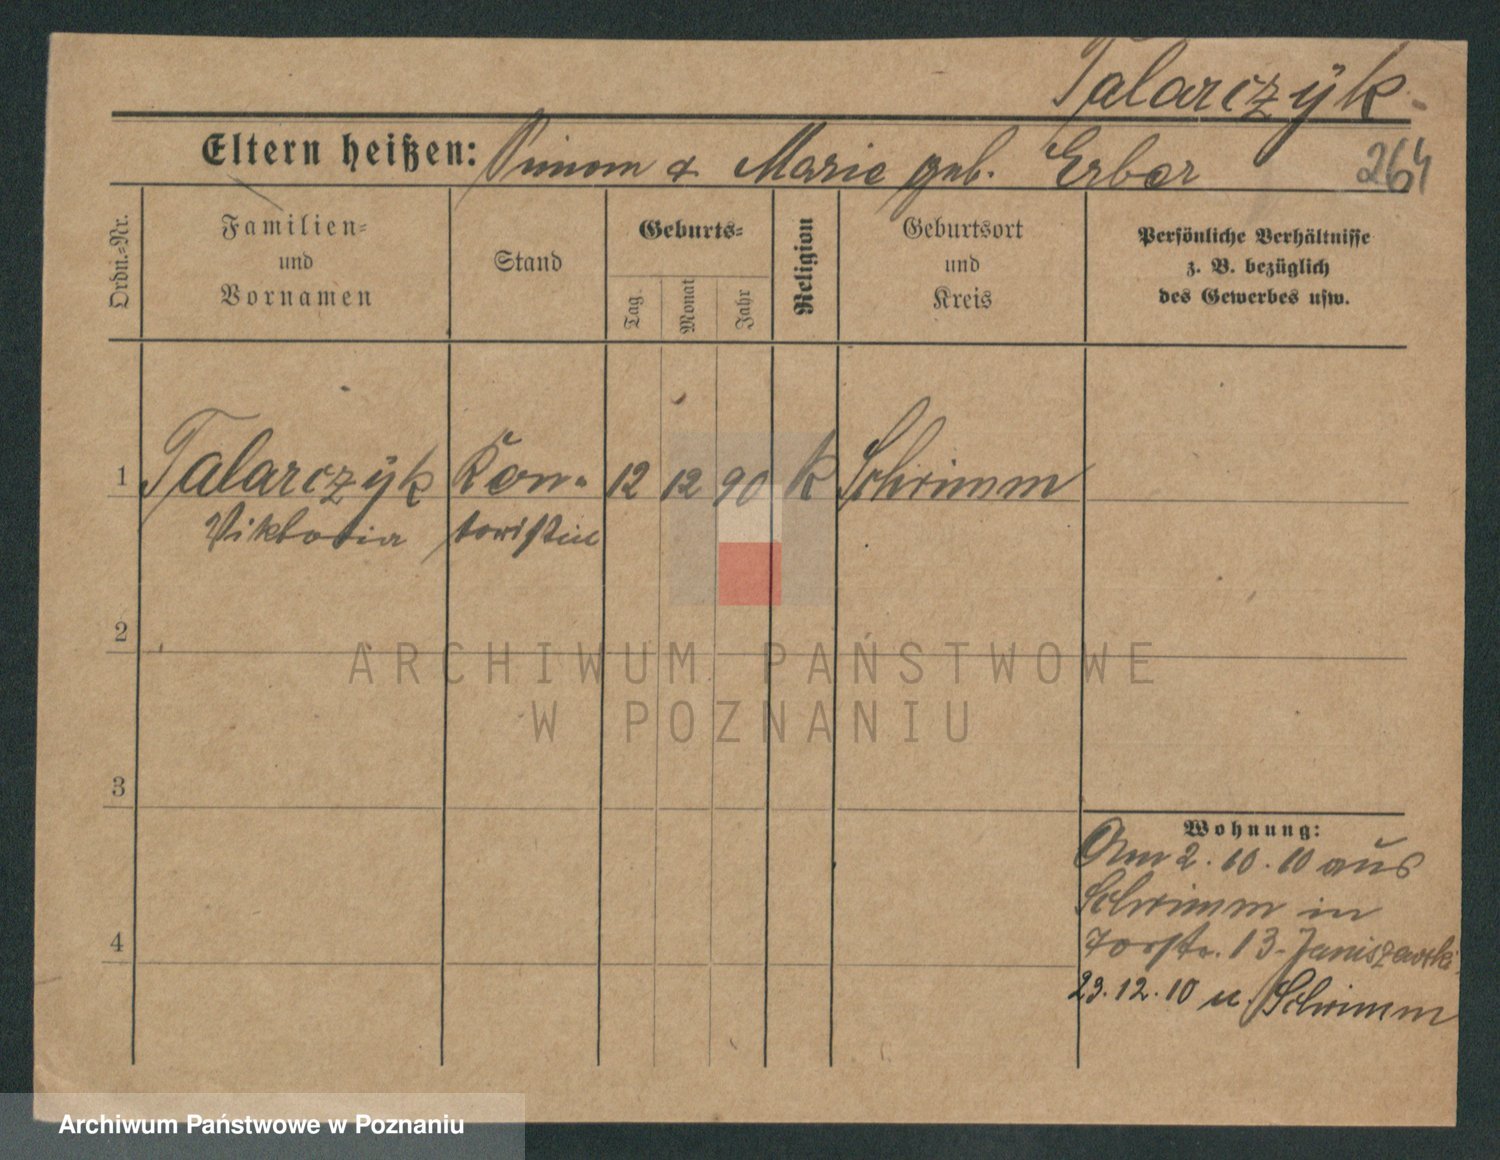 Talarczyk.
Eltern heißen: Simon & Marie geb. Erber
264
Ordn.-Nr.
Familien-
und
Vornamen
Stand
Geburts-
Tag.
Monat
Jahr
Religion
Geburtsort
und
Kreis
Persönliche Verhältnisse
z. B. bezüglich
des Gewerbes usw.
1 Talarczyk Kon- 12 12 90 k Schrimm
Viktoria toristin
2
3
4
Wohnung:
Am 2.10.10 aus
Schrimm in
Torstr. 13 - Janiszewski
23.12.10 n. Schrimm
ARCHIWUM PAŃSTWOWE
W POZNANIU
Archiwum Państwowe w Poznaniu